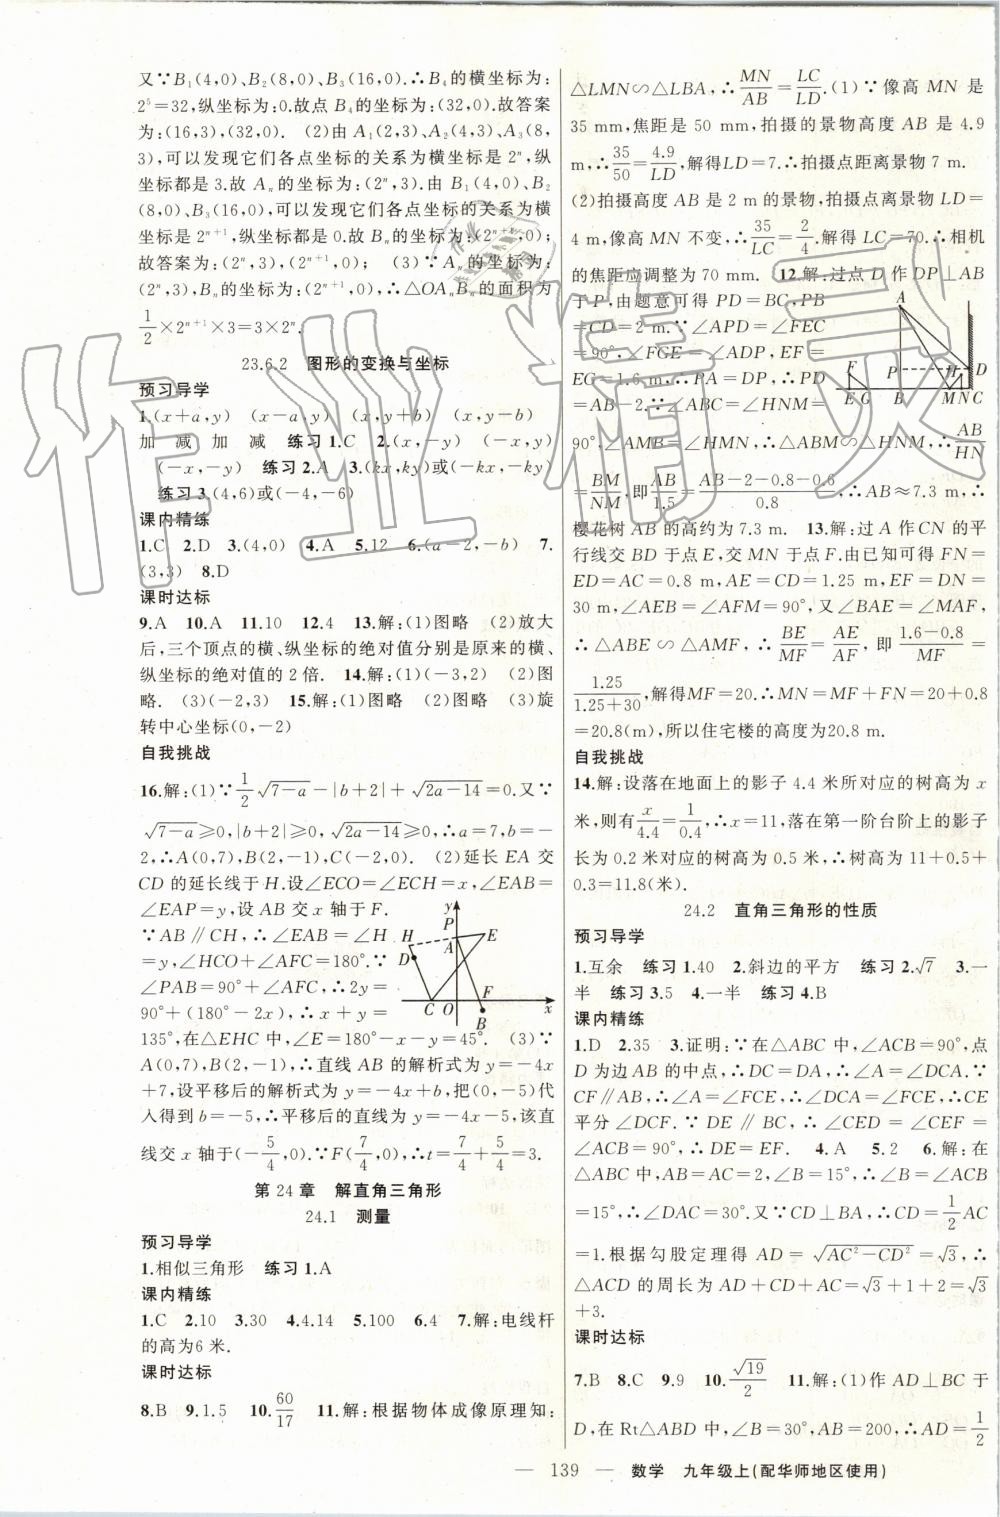 又∵B₁(4,0)、B₂(8,0)、B₃(16,0).∴B₄的横坐标为:
2⁵=32,纵坐标为:0.故点B₄的坐标为:(32,0).故答案
为:(16,3),(32,0). (2)由A₁(2,3)、A₂(4,3)、A₃(8,
3),可以发现它们各点坐标的关系为横坐标是2ⁿ,纵
坐标都是3.故Aₙ的坐标为:(2ⁿ,3).由B₁(4,0)、B₂
(8,0)、B₃(16,0),可以发现它们各点坐标的关系为横
坐标是2ⁿ⁺¹,纵坐标都是0.故Bₙ的坐标为:(2ⁿ⁺¹,0);
故答案为:(2ⁿ,3),(2ⁿ⁺¹,0); (3)∵Aₙ的坐标为:
(2ⁿ,3),Bₙ的坐标为:(2ⁿ⁺¹,0),∴△OAₙBₙ的面积为
1/2×2ⁿ⁺¹×3=3×2ⁿ.
23.6.2 图形的变换与坐标
预习导学
1.(x+a,y) (x-a,y) (x,y+b) (x,y-b)
加 减 加 减 练习1.C 2.(x,-y) (-x,y)
(-x,-y) 练习2.A 3.(kx,ky)或(-kx,-ky)
练习3.(4,6)或(-4,-6)
课内精练
1.C 2.D 3.(4,0) 4.A 5.12 6.(a-2,-b) 7.
(3,3) 8.D
课时达标
9.A 10.A 11.10 12.4 13.解:(1)图略 (2)放大
后,三个顶点的横、纵坐标的绝对值分别是原来的横、
纵坐标的绝对值的2倍. 14.解:(1)(-3,2) (2)图
略. (3)(-2,3) 15.解:(1)图略 (2)图略 (3)旋
转中心坐标(0,-2)
自我挑战
16.解:(1)∵1/2√(7-a)-|b+2|+√(2a-14)=0.又∵
√(7-a)≥0,|b+2|≥0,√(2a-14)≥0,∴a=7,b=-
2,∴A(0,7),B(2,-1),C(-2,0). (2)延长EA交
CD的延长线于H.设∠ECO=∠ECH=x,∠EAB=
∠EAP=y,设AB交x轴于F.
∵AB∥CH,∴∠EAB=∠H
=y,∠HCO+∠AFC=180°.∵
∠PAB=90°+∠AFC,∴2y=
90°+(180°-2x),∴x+y=
135°,在△EHC中,∠E=180°-x-y=45°. (3)∵
A(0,7),B(2,-1),∴直线AB的解析式为y=-4x
+7,设平移后的解析式为y=-4x+b,把(0,-5)代
入得到b=-5,∴平移后的直线为y=-4x-5,该直
线交x轴于(-5/4,0).∵F(7/4,0),∴t=7/4+5/4=3.
y
P
A
E
H
D
C
O
F
B
x
第24章 解直角三角形
24.1 测量
预习导学
1.相似三角形 练习1.A
课内精练
1.C 2.10 3.30 4.4.14 5.100 6.4 7.解:电线杆
的高为6米.
课时达标
8.B 9.1.5 10.60/17 11.解:根据物体成像原理知:
△LMN∽△LBA,∴MN/AB=LC/LD.(1)∵像高MN是
35 mm,焦距是50 mm,拍摄的景物高度AB是4.9
m,∴35/50=4.9/LD,解得LD=7.∴拍摄点距离景物7 m.
(2)拍摄高度AB是2 m的景物,拍摄点离景物LD=
4 m,像高MN不变,∴35/LC=2/4.解得LC=70.∴相机
的焦距应调整为70 mm. 12.解:过点D作DP⊥AB
于P,由题意可得PD=BC,PB
=CD=2 m.∵∠APD=∠FEC
=90°,∠FGE=∠ADP,EF=
EG=1.6 m,∴PA=DP,∴PD
=AB-2.∵∠ABC=∠HNM=
90°,∠AMB=∠HMN,∴△ABM∽△HNM,∴AB/HN
=BM/NM,即AB/1.5=(AB-2-0.8-0.6)/0.8,∴AB≈7.3 m,∴
樱花树AB的高约为7.3 m. 13.解:过A作CN的平
行线交BD于点E,交MN于点F.由已知可得FN=
ED=AC=0.8 m,AE=CD=1.25 m,EF=DN=
30 m,∠AEB=∠AFM=90°,又∠BAE=∠MAF,
∴△ABE∽△AMF,∴BE/MF=AE/AF,即(1.6-0.8)/MF=
1.25/(1.25+30),解得MF=20.∴MN=MF+FN=20+0.8
=20.8(m),所以住宅楼的高度为20.8 m.
A
F
P
H
D
E G
B
M N C
自我挑战
14.解:设落在地面上的影子4.4米所对应的树高为x
米,则有x/4.4=1/0.4,∴x=11,落在第一阶台阶上的影子
长为0.2米对应的树高为0.5米,∴树高为11+0.5+
0.3=11.8(米).
24.2 直角三角形的性质
预习导学
1.互余 练习1.40 2.斜边的平方 练习2.√7 3.一
半 练习3.5 4.一半 练习4.B
课内精练
1.D 2.35 3.证明:∵在△ABC中,∠ACB=90°,点
D为边AB的中点,∴DC=DA,∴∠A=∠DCA.∵
CF∥AB,∴∠A=∠FCE,∴∠DCA=∠FCE,∴CE
平分∠DCF.∵DE∥BC,∴∠CED=∠CEF=
∠ACB=90°,∴DE=EF. 4.A 5.2 6.解:在
△ABC中,AB=AC=2,∠B=15°,∴∠B=∠ACB
=15°,∴∠DAC=30°.又∵CD⊥BA,∴CD=1/2AC
=1.根据勾股定理得AD=√(AC²-CD²)=√3,∴
△ACD的周长为AD+CD+AC=√3+1+2=√3
+3.
课时达标
7.B 8.C 9.9 10.√19/2 11.解:(1)作AD⊥BC于
D,在Rt△ABD中,∠B=30°,AB=200,∴AD=1/2
— 139 — 数学 九年级上(配华师地区使用)
作业精灵